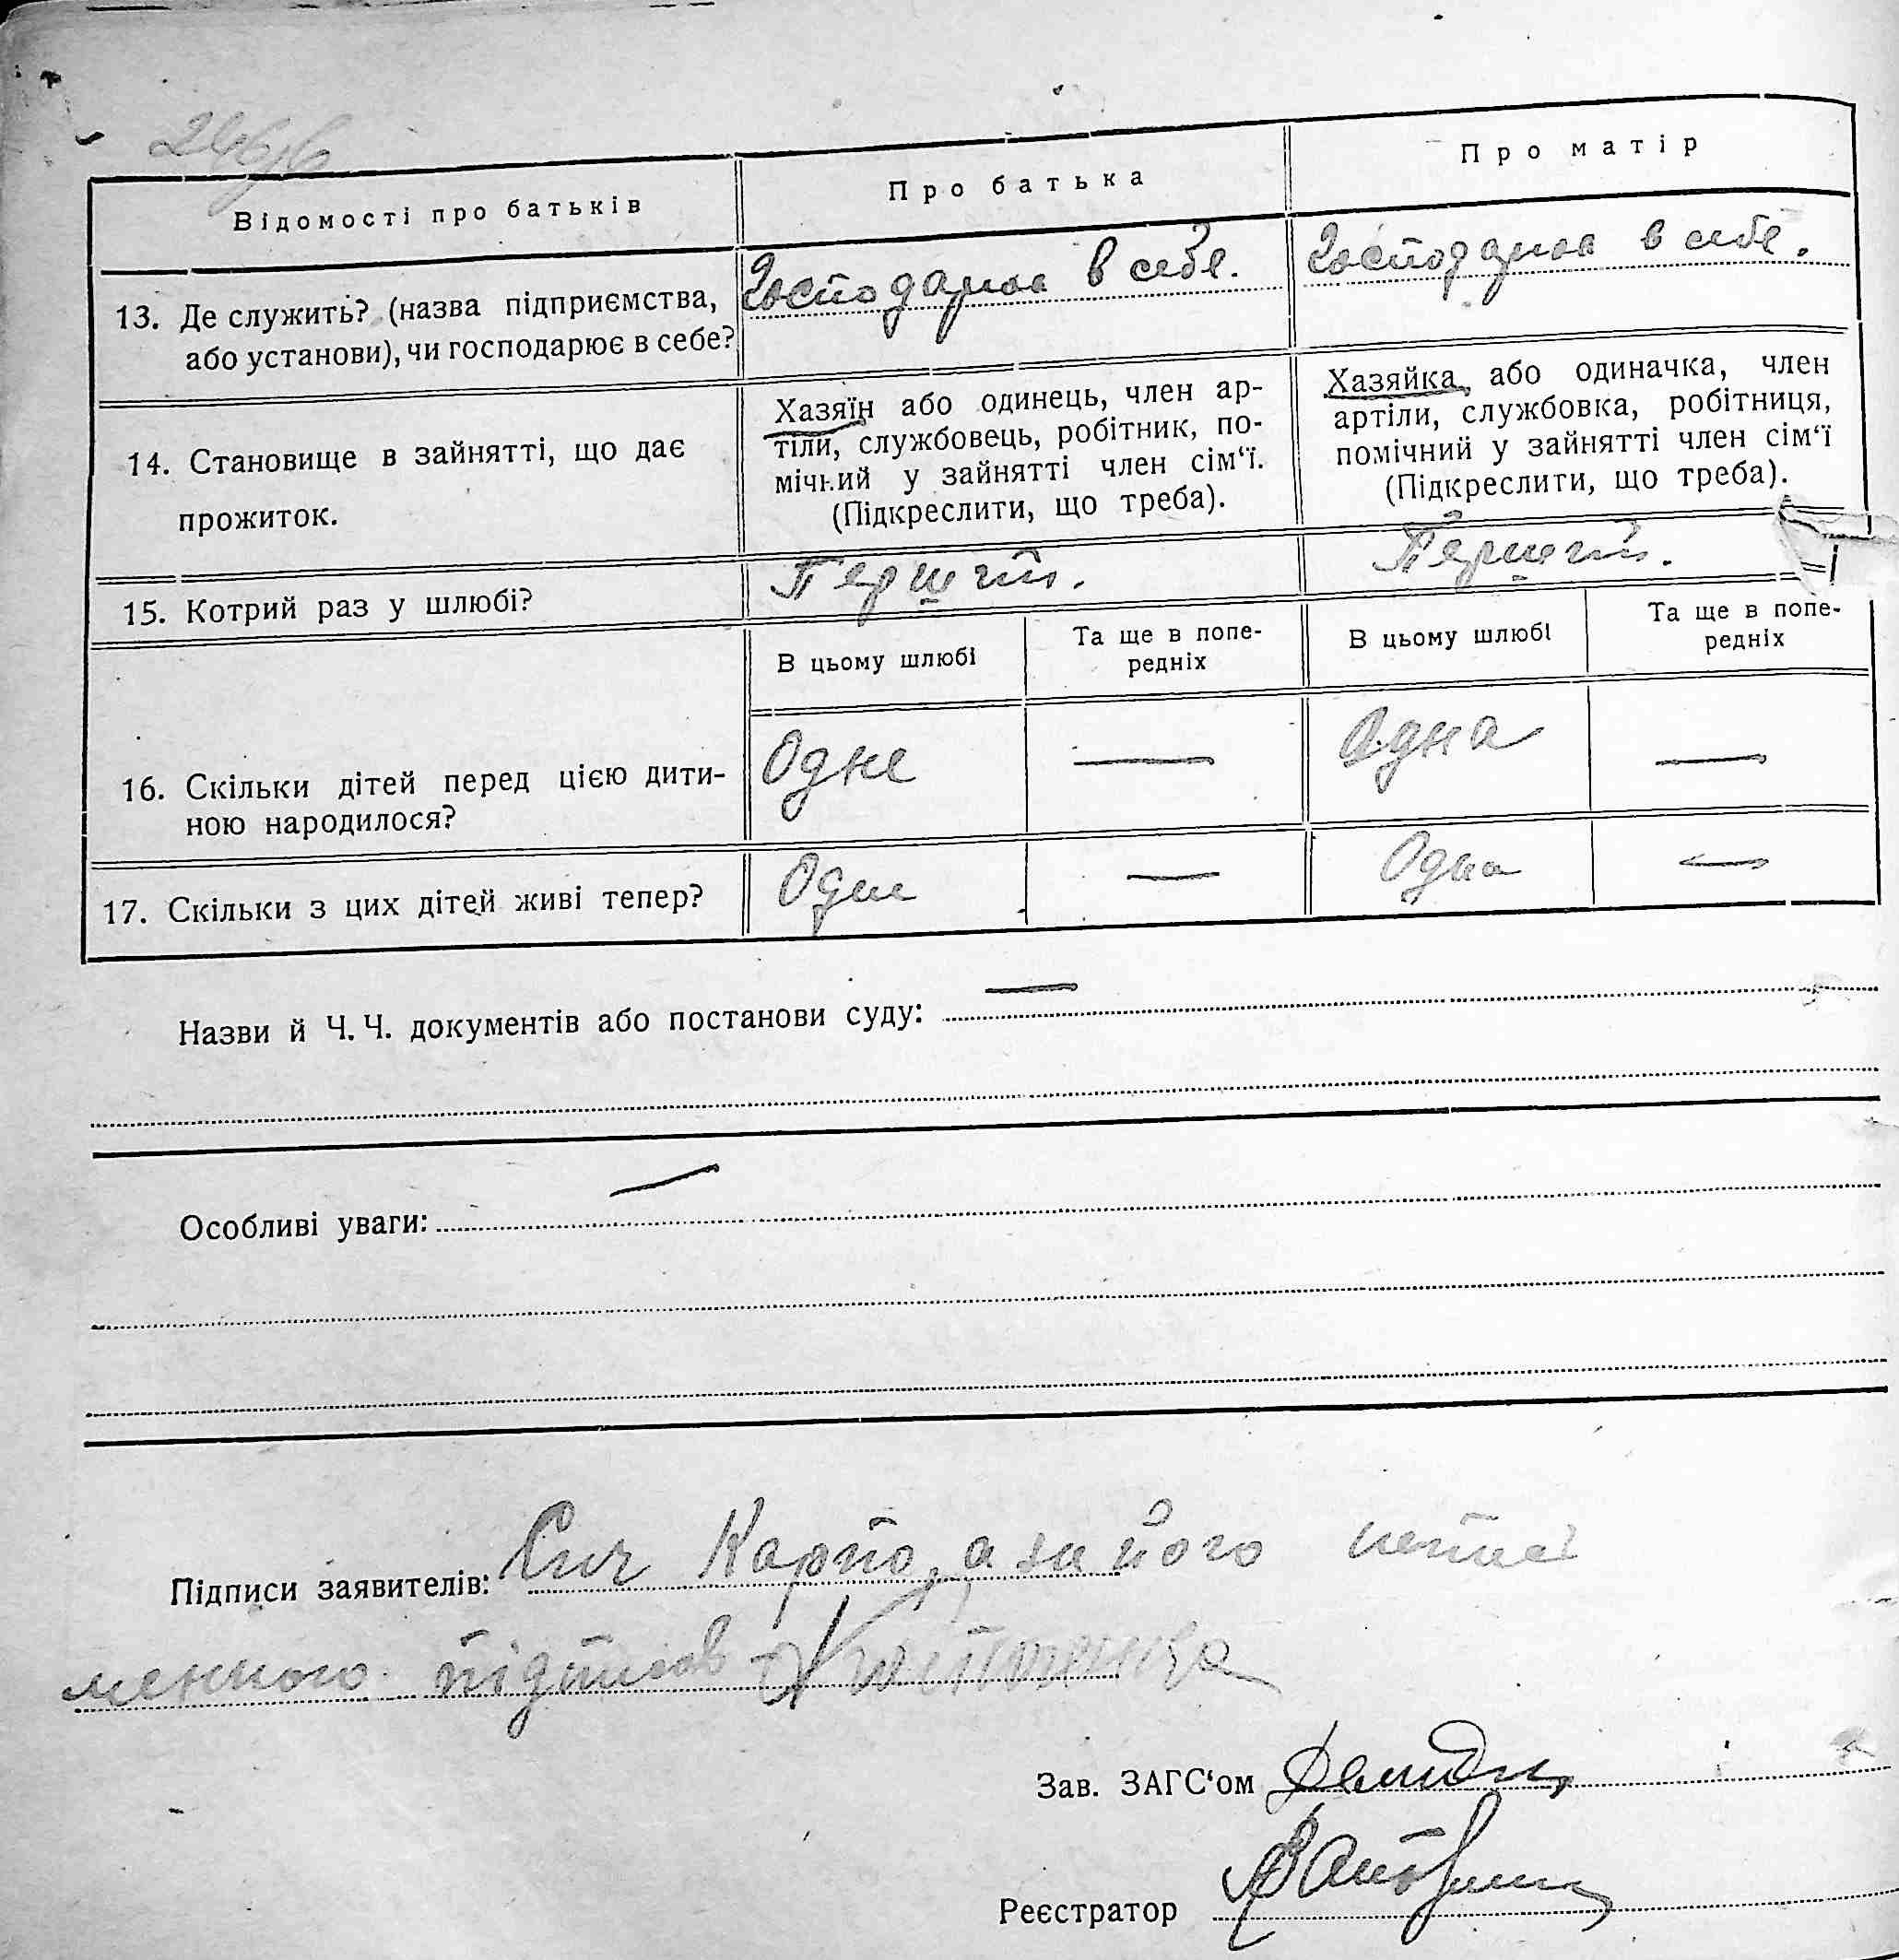 Відомості про батьків
Про батька
Про матір
13. Де служить? (назва підприємства,
або установи), чи господарює в себе?
Господарює в себе.
Господарює в себе.
14. Становище в зайнятті, що дає
прожиток.
Хазяїн або одинець, член ар-
тіли, службовець, робітник, по-
мічний у зайнятті член сім‘ї.
(Підкреслити, що треба).
Хазяйка, або одиначка, член
артіли, службовка, робітниця,
помічний у зайнятті член сім‘ї
(Підкреслити, що треба).
15. Котрий раз у шлюбі?
Перший.
Перший.
В цьому шлюбі
Та ще в попе-
редніх
В цьому шлюбі
Та ще в попе-
редніх
16. Скільки дітей перед цією дити-
ною народилося?
Одне —
Одна —
17. Скільки з цих дітей живі тепер?
Одне —
Одна —
Назви й Ч. Ч. документів або постанови суду: —
Особливі уваги: —
Підписи заявителів: Сич Карпо, а за його непис

менного підписав
Зав. ЗАГС‘ом
Реєстратор